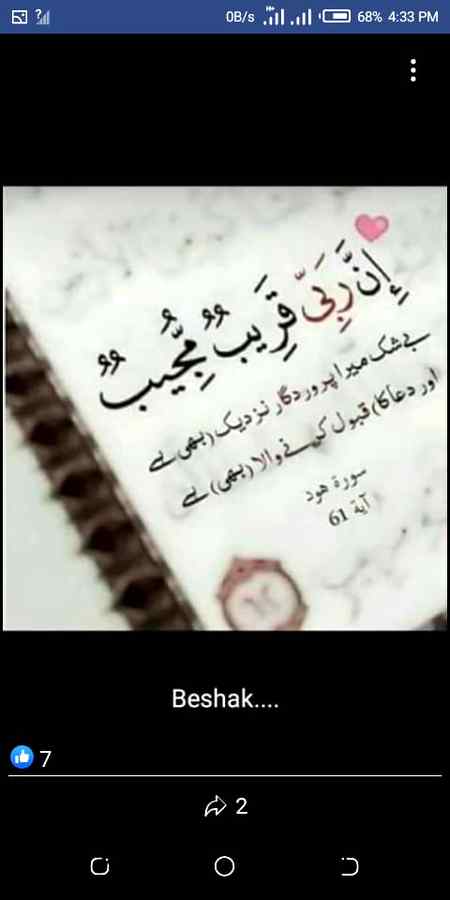 0B/s 68% 4:33 PM
إِنَّ رَبِّی قَرِیبٌ مُّجِیبٌ
بے شک میرا پروردگار نزدیک (بھی ہے
اور دعا کا) قبول کرنے والا (بھی) ہے
سورة هود
آية 61
Beshak....
7
2